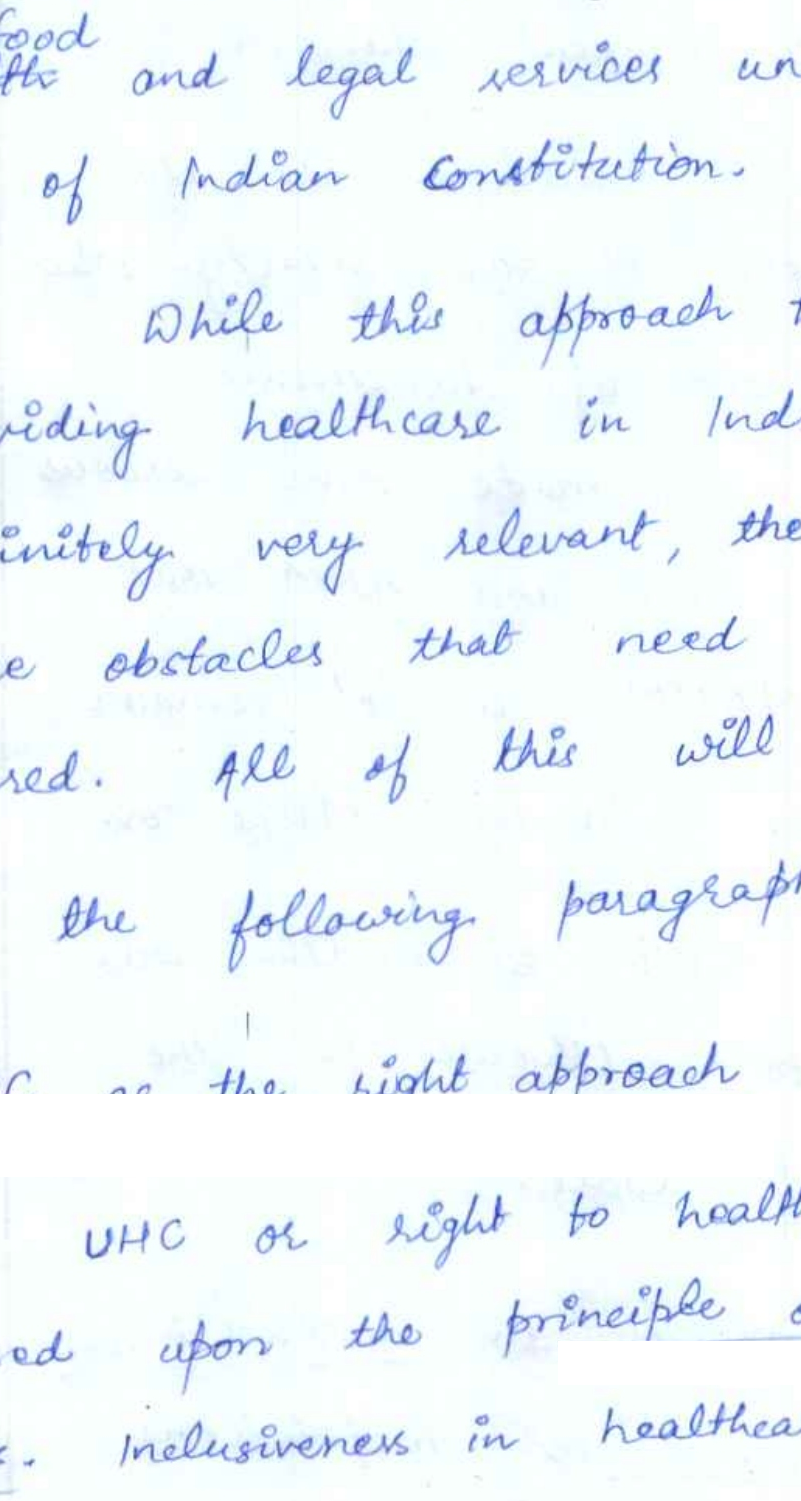 food
and legal services un
of Indian Constitution.
While this approach t
viding healthcare in Ind
initely very relevant, the
e obstacles that need
red. All of this will
the following paragraph
the right approach
UHC or right to health
ed upon the principle
. Inclusiveness in healthca